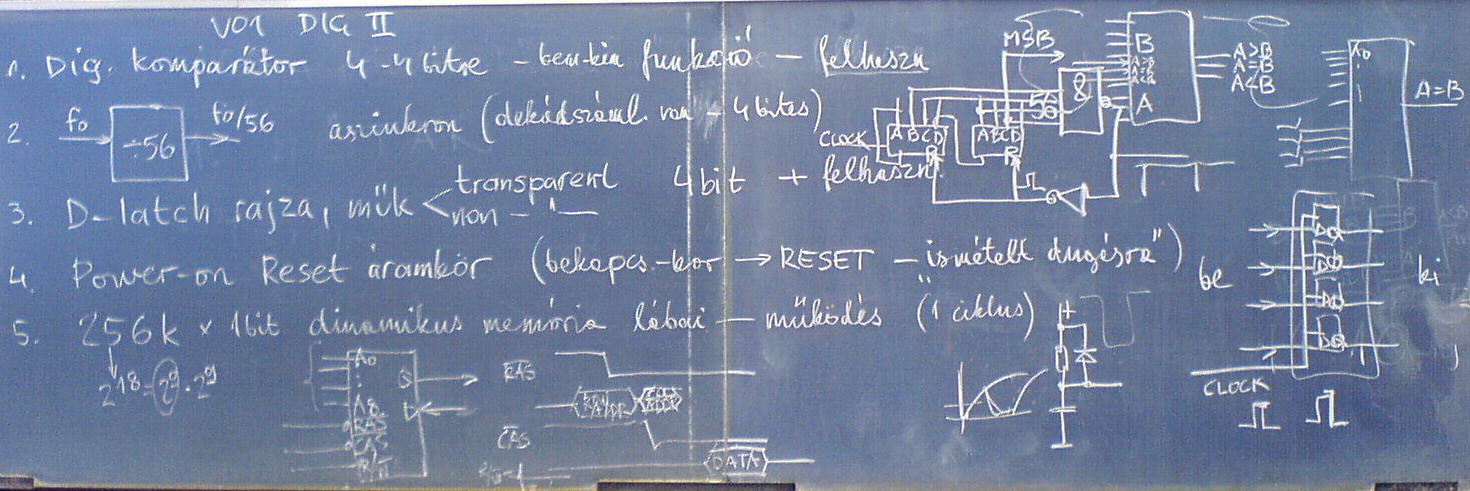 V01 DIG II
1. Dig. komparátor 4-4 bitre - bem-kim funkció - felhaszn
2. f0 ÷56 f0/56 aszinkron (dekádszáml. van - 4 bites)
3. D-latch rajza, műk transparent 4 bit + felhaszn.
non - " -
4. Power-on Reset áramkör (bekapcs.-kor → RESET - "ismételt dugásra")
5. 256k × 1bit dinamikus memória lábai - működés (1 ciklus)
2^18 = 2^9 · 2^9
A0
A8
RAS
CAS
Q
D
RAS
CAS
DATA
MSB
B
A>B
A=B
A<B
A
56
&
CLOCK
ABCD
R
ABCD
R
A0
A=B
be
ki
DQ
DQ
DQ
DQ
CLOCK
+